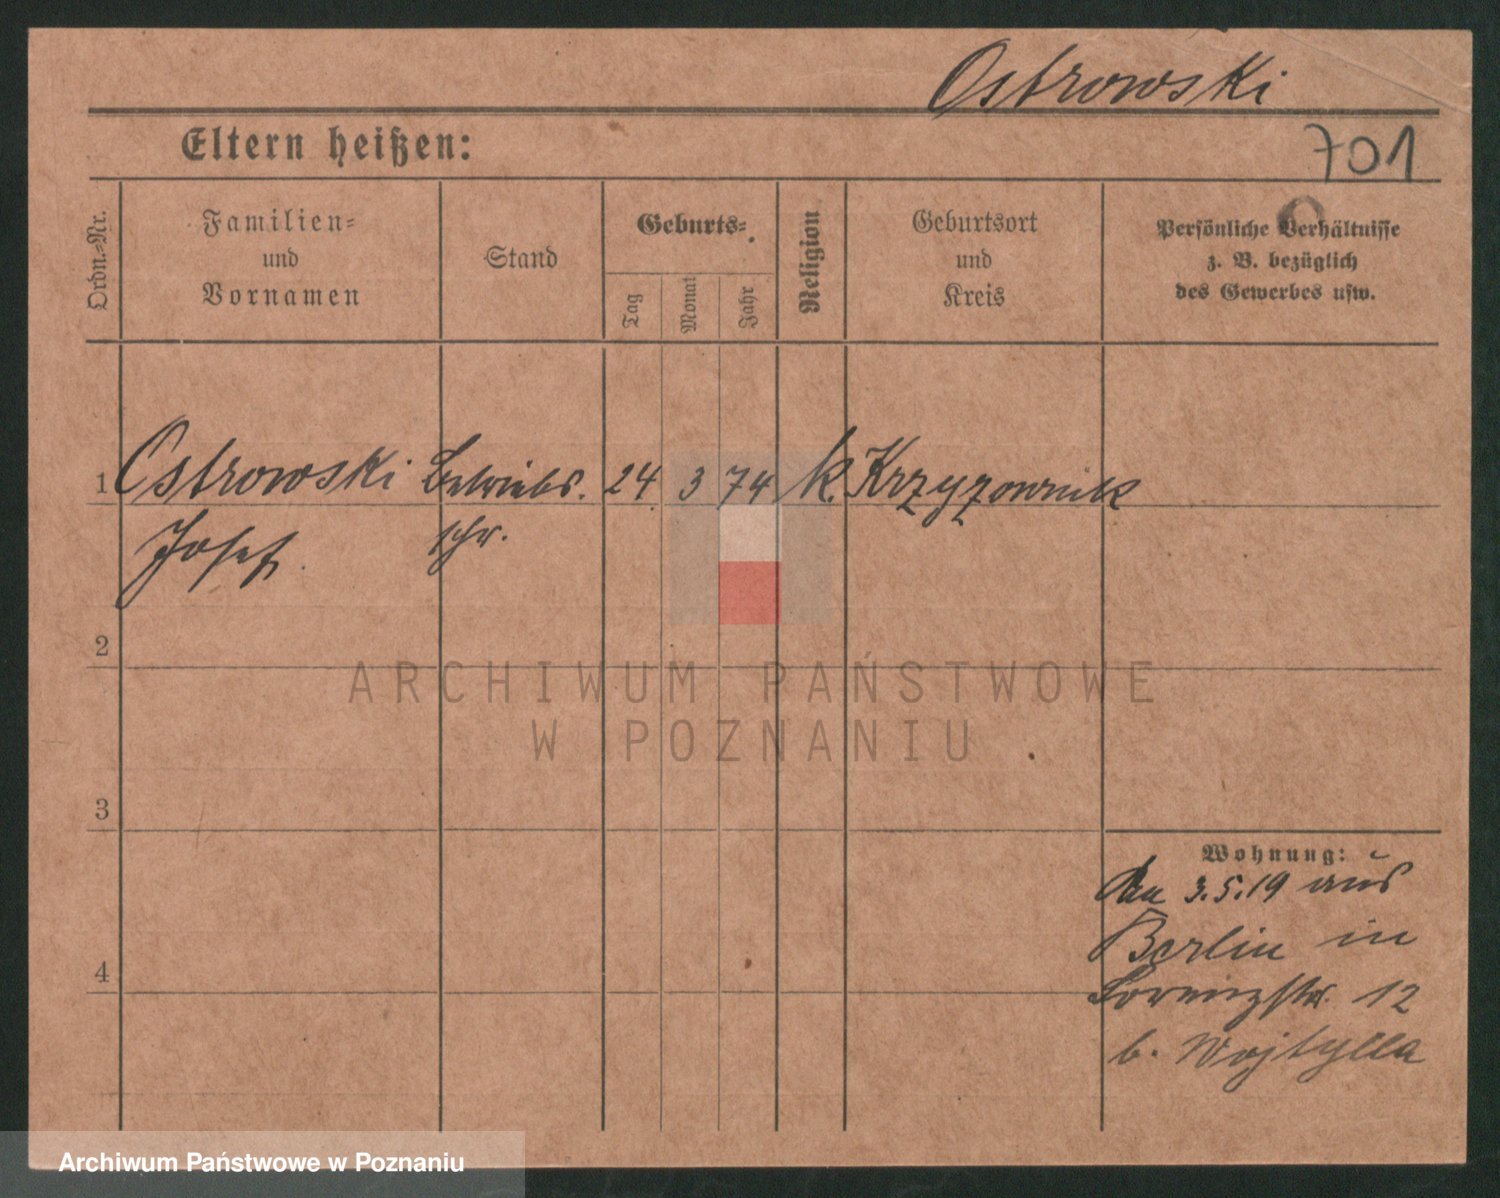 Ostrowski
Eltern heißen:
701
Ordn.=Nr.
Familien=
und
Vornamen
Stand
Geburts=
Tag
Monat
Jahr
Religion
Geburtsort
und
Kreis
Persönliche Verhältnisse
z. B. bezüglich
des Gewerbes usw.
1 Ostrowski Betriebs. 24 3 74 k. Krzyzownik
Josef schr.
2
ARCHIWUM PAŃSTWOWE
W POZNANIU
3
Wohnung:
3.5.19 aus
Berlin in
4
12
b. Wojtylla
Archiwum Państwowe w Poznaniu